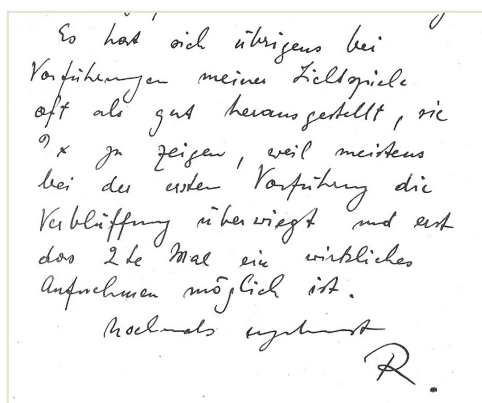 Es hat sich übrigens bei
Vorführungen meiner Lichtspiele
oft als gut herausgestellt, sie
2x zu zeigen, weil meistens
bei der ersten Vorführung die
Verblüffung überwiegt und erst
das 2te Mal ein wirkliches
Aufnehmen möglich ist.
Nochmals
R.